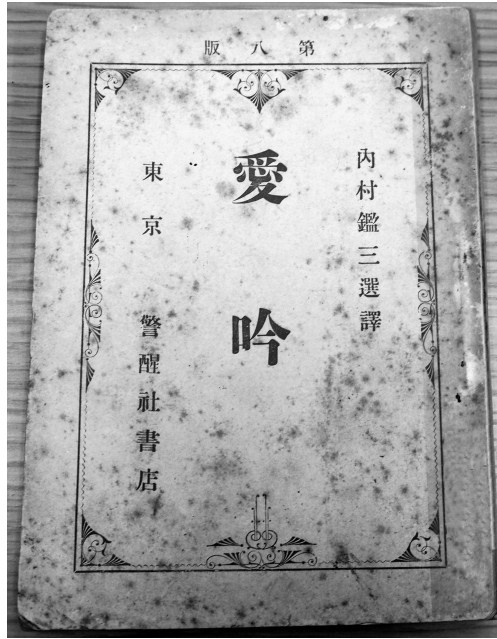 版八第
内村鑑三選譯
愛吟
東京 警醒社書店